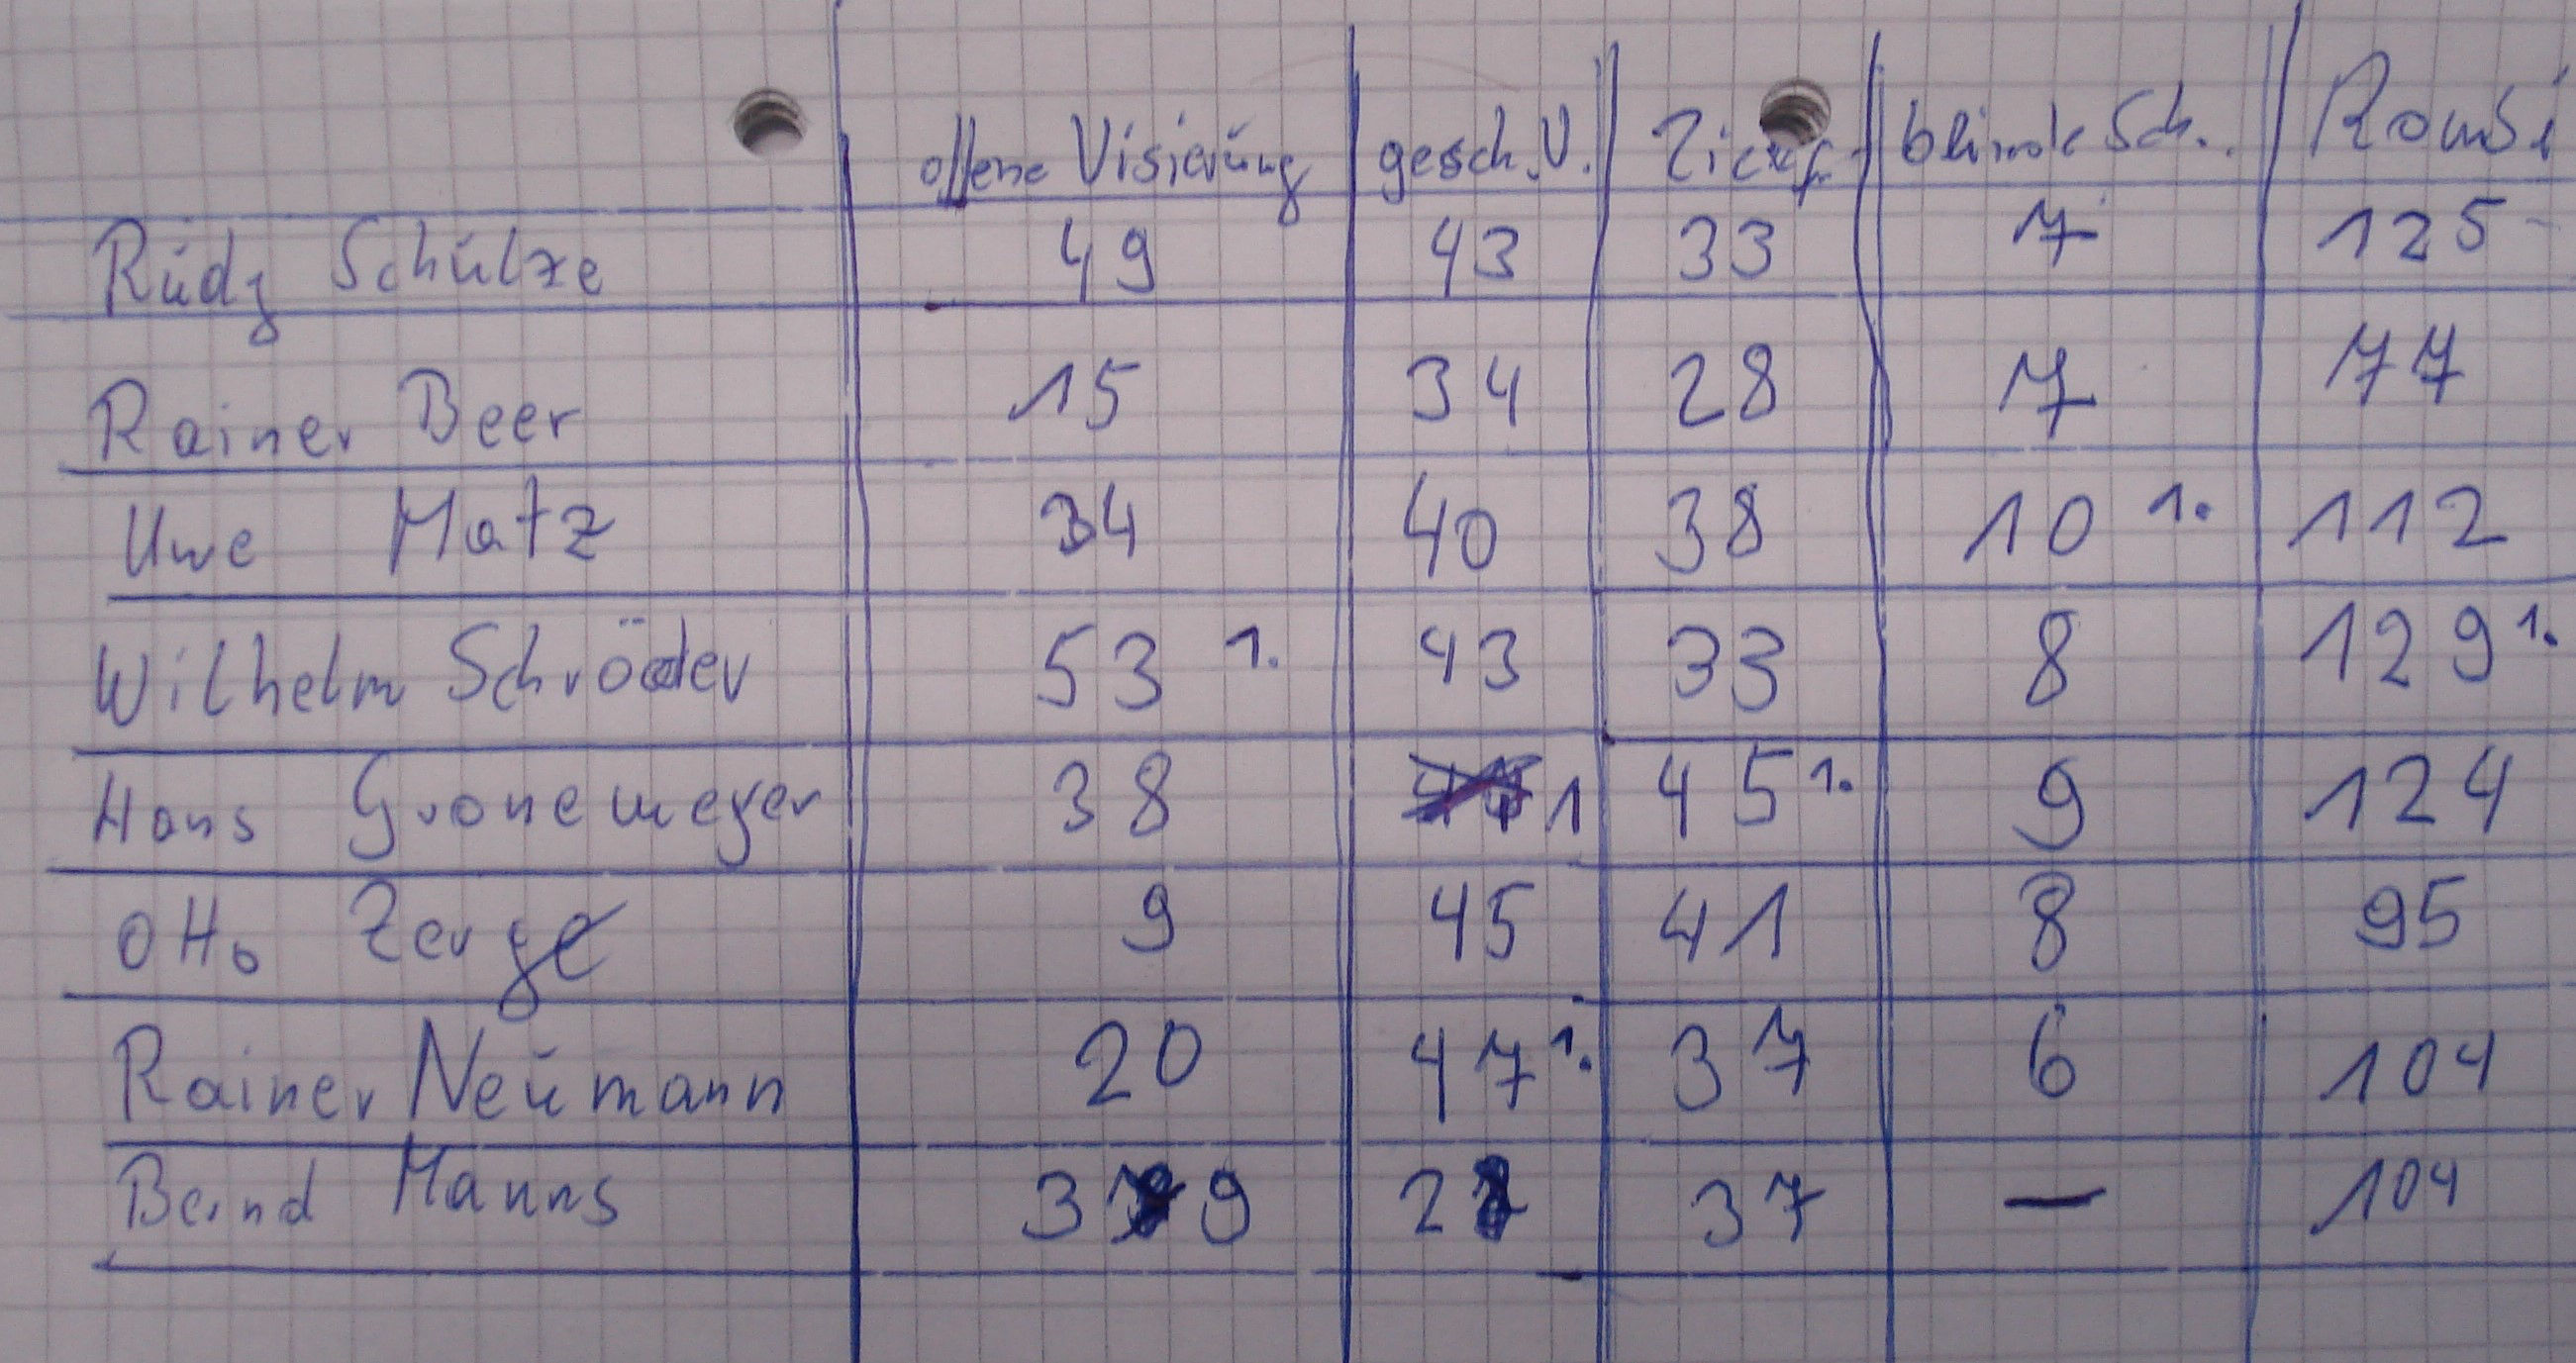 offene Visierung gesch. V. Zielf. blinde Sch. Kombi
Rüdg Schülze 49 43 33 7 125
Rainer Beer 15 34 28 7 77
Uwe Matz 34 40 38 10 1. 112
Wilhelm Schröder 53 1. 43 33 8 129 1.
Hans Gronemeyer 38 41 45 1. 9 124
Otto Zerge 9 45 41 8 95
Rainer Neümann 20 47 1. 37 6 104
Bernd Manns 39 28 37 — 104